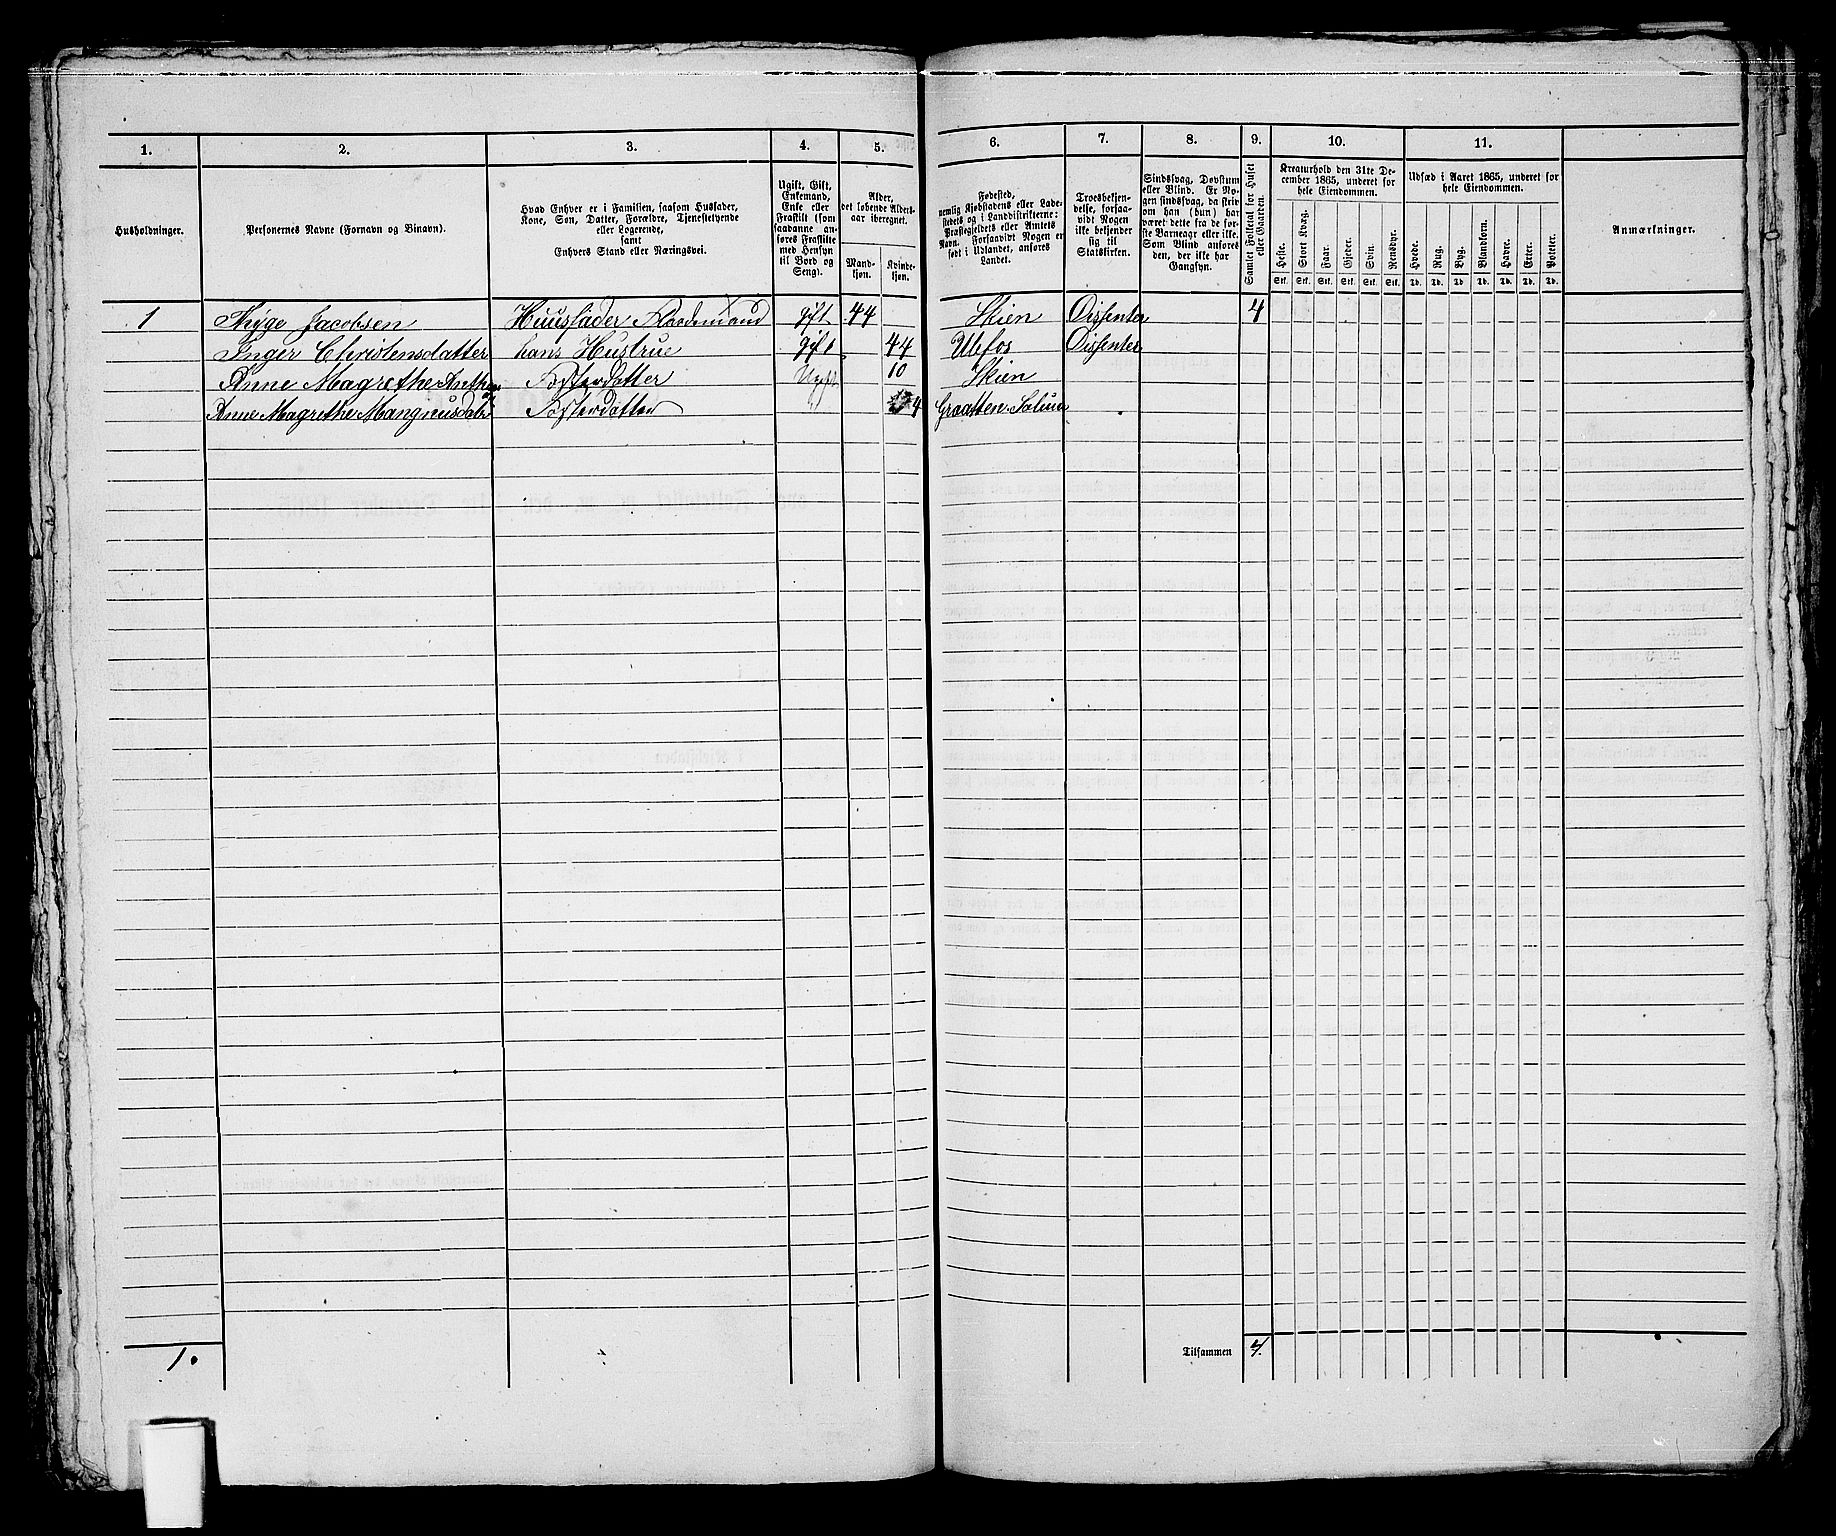 1. 2. 3. 4. 5. 6. 7. 8. 9. 10. 11.
Husholdninger.
Personernes Navne (Fornavn og Binavn).
Hvad Enhver er i Familien, saasom Husfader,
Kone, Søn, Datter, Forældre, Tjenestetyende
eller Logerende,
samt
Enhvers Stand eller Næringsvei.
Ugift, Gift,
Enkemand,
Enke eller
Fraskilt (som
saadanne an-
føres Fraskilte
med Hensyn
til Bord og
Seng).
Alder,
det løbende Alders-
aar iberegnet.
Mand-
kjøn.
Kvinde-
kjøn.
Fødested,
nemlig Kjøbstadens eller Lade-
stedets og i Landdistrikterne:
Præstegjeldets eller Amtets
Navn. Forsaavidt Nogen er
født i Udlandet, anføres
Landet.
Troesbekjen-
delse, forsaa-
vidt Nogen
ikke bekjender
sig til
Statskirken.
Sindssvag, Døvstum
eller Blind. Er No-
gen sindssvag, da skriv
om han (hun) har
været dette fra de før-
ste Barneaar eller ikke.
Som Blind anføres
den, der ikke har
Gangsyn.
Samlet Folketal for Huset
eller Gaarden.
Kreaturhold den 31te De-
cember 1865, underet for
hele Eiendommen.
Heste. Stort Kvæg. Faar. Gjeder. Svin. Rensdyr.
Stk. Stk. Stk. Stk. Stk. Stk.
Udsæd i Aaret 1865, underet for
hele Eiendommen.
Hvede. Rug. Byg. Blandkorn. Havre. Erter. Poteter.
Td. Td. Td. Td. Td. Td. Td.
Anmærkninger.
1 Thÿge Jacobsen Huusfader gift 44 Skien Disfenter 4
Inger Christensdatter hans Hustrue gift 44 Ulefos Disfenter
Anne Magrethe Fosterdatter Ugift 10 Skien
Anne Magrethe Mangnusdatr Fosterdatter 4 Graatten Solum
1. Tilsammen 4.